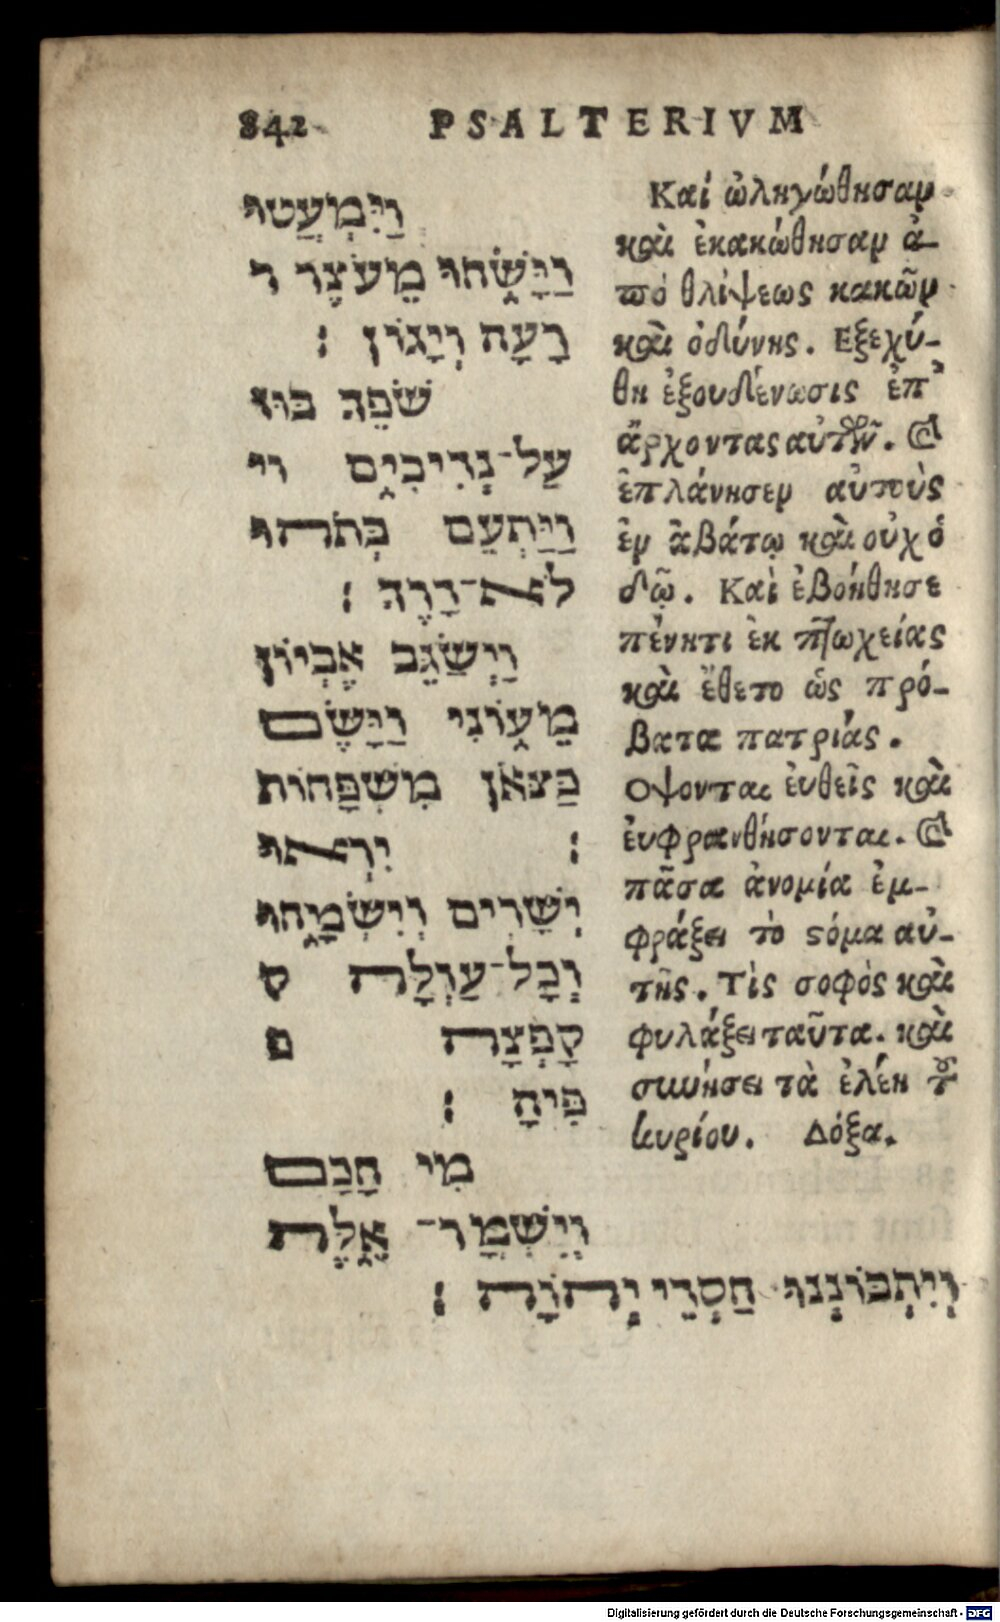 842 PSALTERIVM
וַיִּמְעֲטוּ
וַיָּשֹׁ֑חוּ מֵעֹצֶר ר
רָעָה וְיָגוֹן ׃
שֹׁפֵךְ בּוּז
עַל־נְדִיבִ֑ים וי
וַיַּתְעֵם בְּתֹהוּ
לֹא־דָרֶךְ ׃
וַיְשַׂגֵּב אֶבְיוֹן
מֵע֑וֹנִי וַיָּשֶׂם
כַּצֹּאן מִשְׁפָּחוֹת
׃ יִרְאוּ
יְשָׁרִים וְיִשְׂמָ֑חוּ
וְכָל־עַוְלָה ק
קָפְצָה פ
פִּיהָ ׃
מִי חָכָם
וְיִשְׁמָר־ אֵ֑לֶּה
וְיִתְבּוֹנְנוּ חַסְדֵי יְהוָֹה ׃
Καί ὠλιγώθησαν
καὶ ἐκακώθησαν ἀ-
πό θλίψεως κακῶν
καὶ ὀδύνης. Εξεχύ-
θη ἐξουδένωσις ἐπ'
ἄρχοντας αὐτῶν. Καὶ
ἐπλάνησεν αὐτοὺς
ἐν ἀβάτῳ καὶ οὐχ ὁ
δῷ. Καὶ ἐβοήθησε
πένητι ἐκ πτωχείας
καὶ ἔθετο ὡς πρό-
βατα πατριάς.
Οψονται ἐυθεῖς καὶ
ἐυφρανθήσονται. Καὶ
πᾶσα ἀνομία ἐμ-
φράξει τὸ ϛόμα αὐ-
τῆς. Τὶς σοφὸς καὶ
φυλάξει ταῦτα. καὶ
συνήσει τὰ ἐλέη τοῦ
κυρίου. Δόξα.
Digitalisierung gefördert durch die Deutsche Forschungsgemeinschaft - DFG